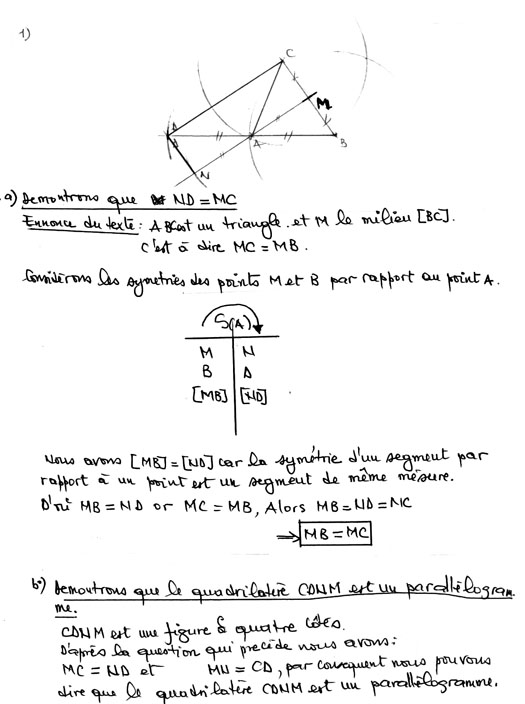 1)
C
M
D
A
B
N
a) Demontrons que ND = MC
Ennonce du texte : ABC est un triangle et M le milieu [BC].
c'est à dire MC = MB.
Considérons les symetries des points M et B par rapport au point A.
S(A)
M N
B D
[MB] [ND]
Nous avons [MB] = [ND] car la symétrie d'un segment par
rapport à un point est un segment de même mésure.
D'où MB = ND or MC = MB, Alors MB = ND = MC
⇒ MB = MC
b) Demontrons que le quadrilatère CDNM est un parallèlogram-
me.
CDNM est une figure à quatre côtés.
D'après la question qui precède nous avons :
MC = ND et MN = CD, par consequent nous pouvons
dire que le quadrilatère CDNM est un parallèlogramme.